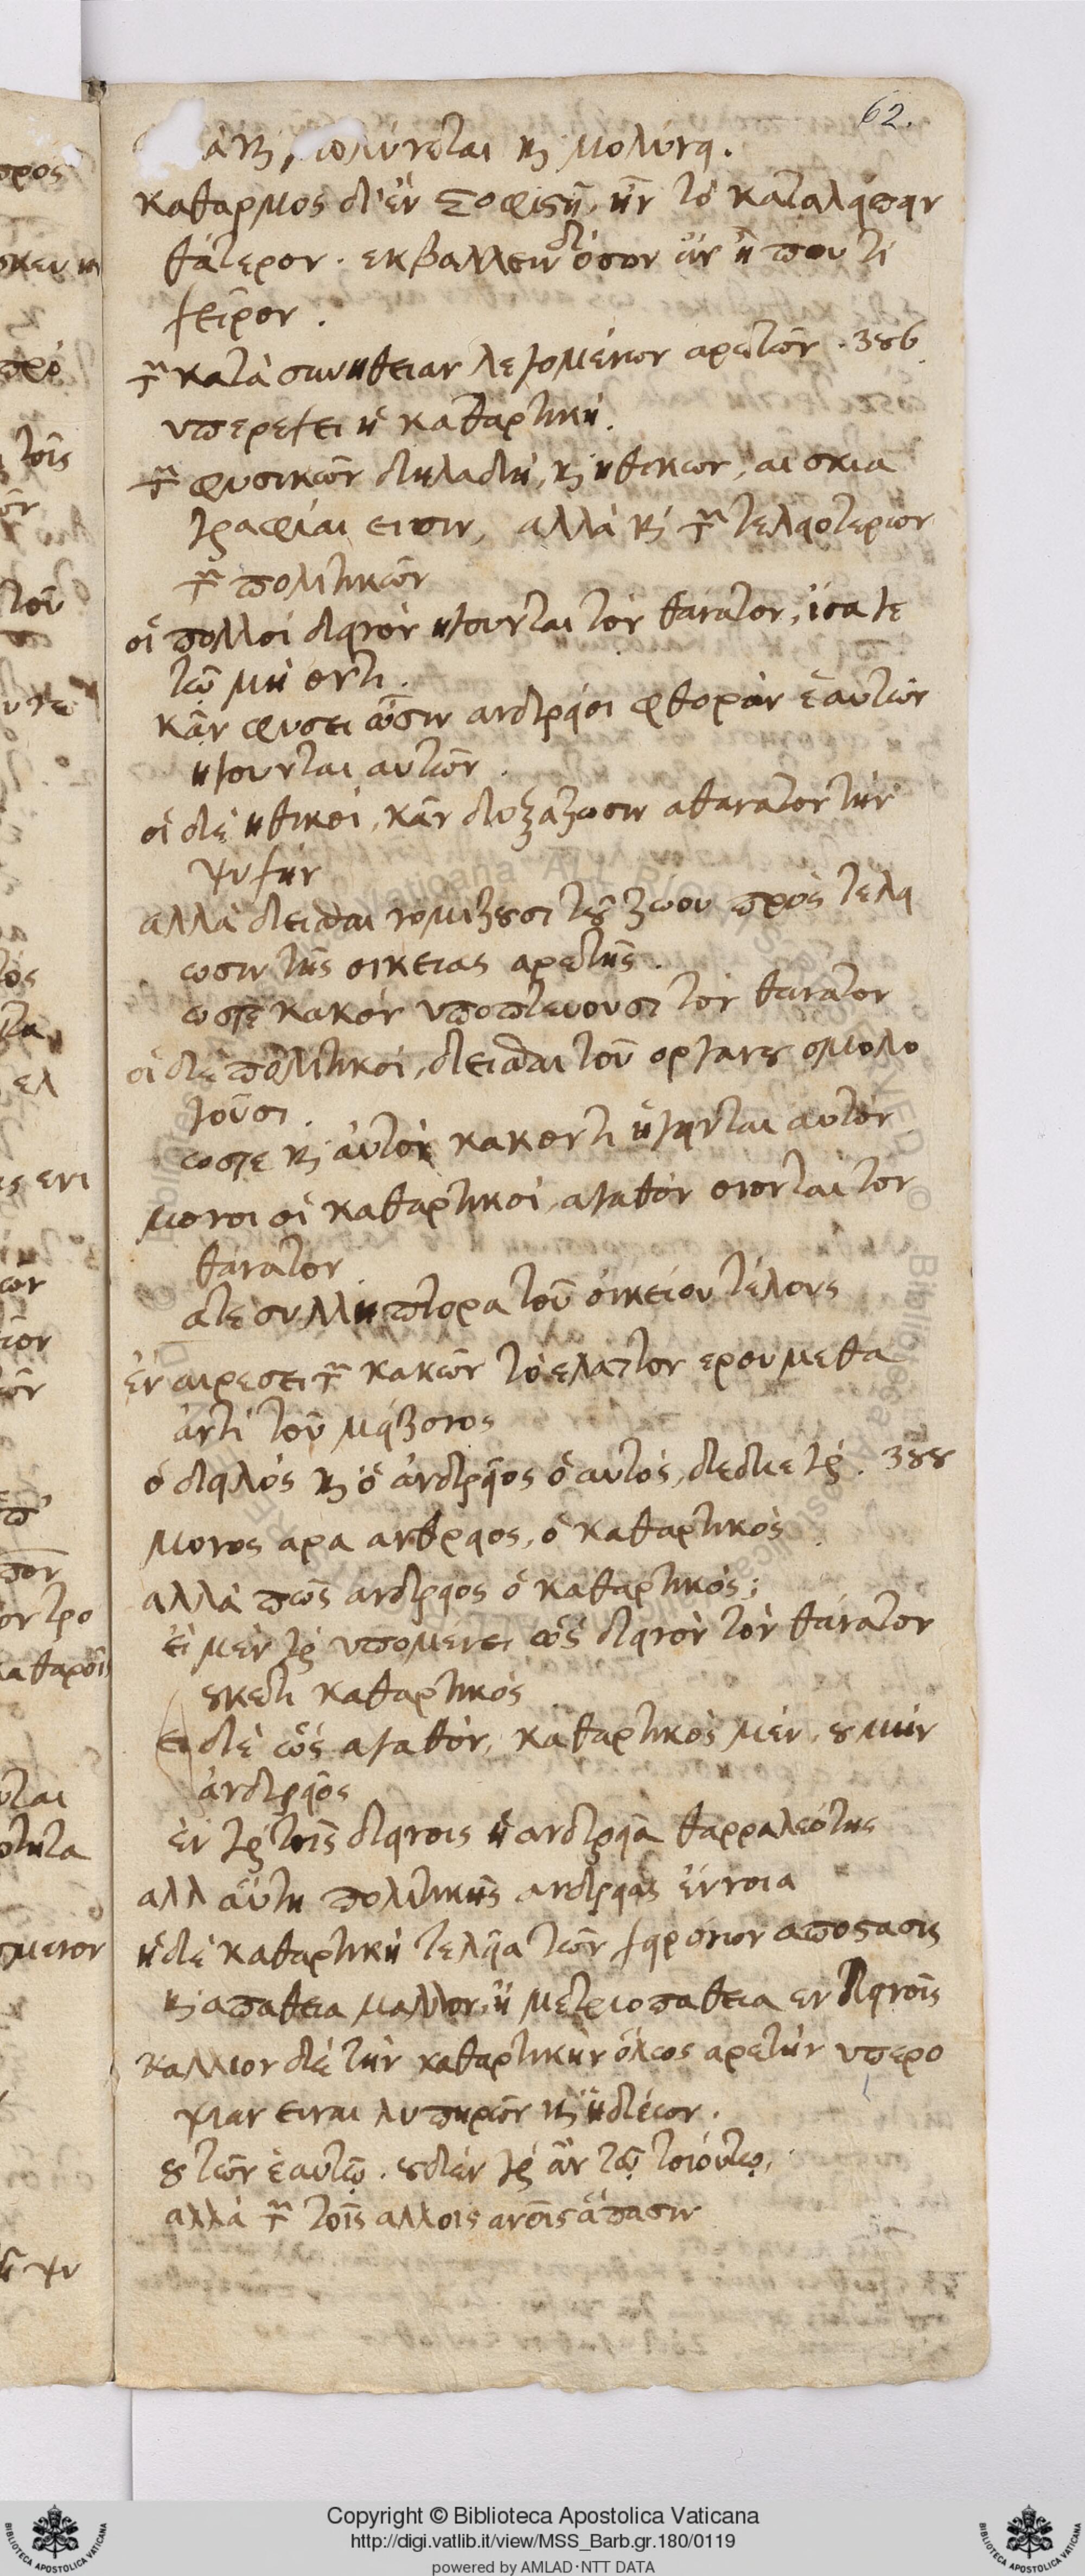 62.
μολύνεται καὶ μολύνει.
καθαρμος δ' ἐν Σοφιστῇ, ἦν τὸ καταλείπειν
θάτερον. εκβαλλειν δ' ὅσον ἂν ῇ που τι
χεῖρον.
τῶν κατὰ συνηθειαν λεγομένων αρετῶν. 386
υπερεχει ἡ καθαρτικὴ.
τῶν φυσικῶν δηλαδή, καὶ ηθικων, αι σκια
γραφίαι εισιν, αλλὰ καὶ τῶν τελειοτερων
τῶν πολιτικῶν
οἱ πολλοί δεινὸν ηγουνται τὸν θάνατον, ἰσα γε
τῷ μὴ οντι.
κἂν φυσει ῶσιν ανδρεῖοι φθορὰν ἑαυτῶν
ηγουνται αυτῶν.
οἱ δὲ ηθικοὶ, κἂν δοξαζωσιν αθανατον τὴν
ψυχὴν
αλλὰ δεισθαι νομιζουσι τοῦ ζωου πρὸς τελει
ωσιν τῆς οικειας αρετῆς.
ωστε κακὸν υποπτευουσι τὸν θανατον
οἱ δὲ πολιτικοὶ, δεισθαι τοῦ οργανου ομολο
γοῦσι.
ωστε καὶ ἀυτοὶ κακον τι ἡγειται αυτὸν
μονοι οἱ καθαρτικοὶ, αγαθὸν οιονται τὸν
θάνατον.
ατε συλλήπτορα τοῦ οἰκείου τέλους
ἐν αιρεσει τῶν κακῶν τὸ ελαττον ερουμεθα
ἀντὶ τοῦ μείζονος
ὁ δειλὸς καὶ ὁ ἀνδρεῖος ὁ αυτὸς, δεδιε γὰρ. 388
μονος αρα ανθρειος, ὁ καθαρτικὸς
αλλὰ πῶς ανδρειος ὁ καθαρτικός;
ἐι μὲν γὰρ υπομενει ὡς δεινὸν τὸν θάνατον
ουκετι καθαρτικός
ει δὲ ὡς αγαθὸν, καθαρτικὸς μὲν, ου μὴν
ἀνδρεῖος
ἐν γὰρ τοῖς δεινοις ἡ ανδρεῖα θαρραλεότης
αλλ αὕτη πολιτικῆς ανδρειας ἔννοια
ἡ δὲ καθαρτικὴ τελεῖα τῶν χειρόνων αποστασις
καὶ απαθεια μαλλον, ἢ μετριοπαθεια εν δεινοῖς
καλλιον δὲ τὴν καθαρτικὴν ὅλως αρετὴν υπερο
ψιαν ειναι λυπηρῶν καὶ ἡδέων.
ου τῶν ἑαυτῷ. ουδὲν γὰρ ἂν τῷ τοιούτῳ,
αλλὰ τῶν τοῖς αλλοις ανοῖς ἅπασιν
Copyright © Biblioteca Apostolica Vaticana
http://digi.vatlib.it/view/MSS_Barb.gr.180/0119
powered by AMLAD·NTT DATA